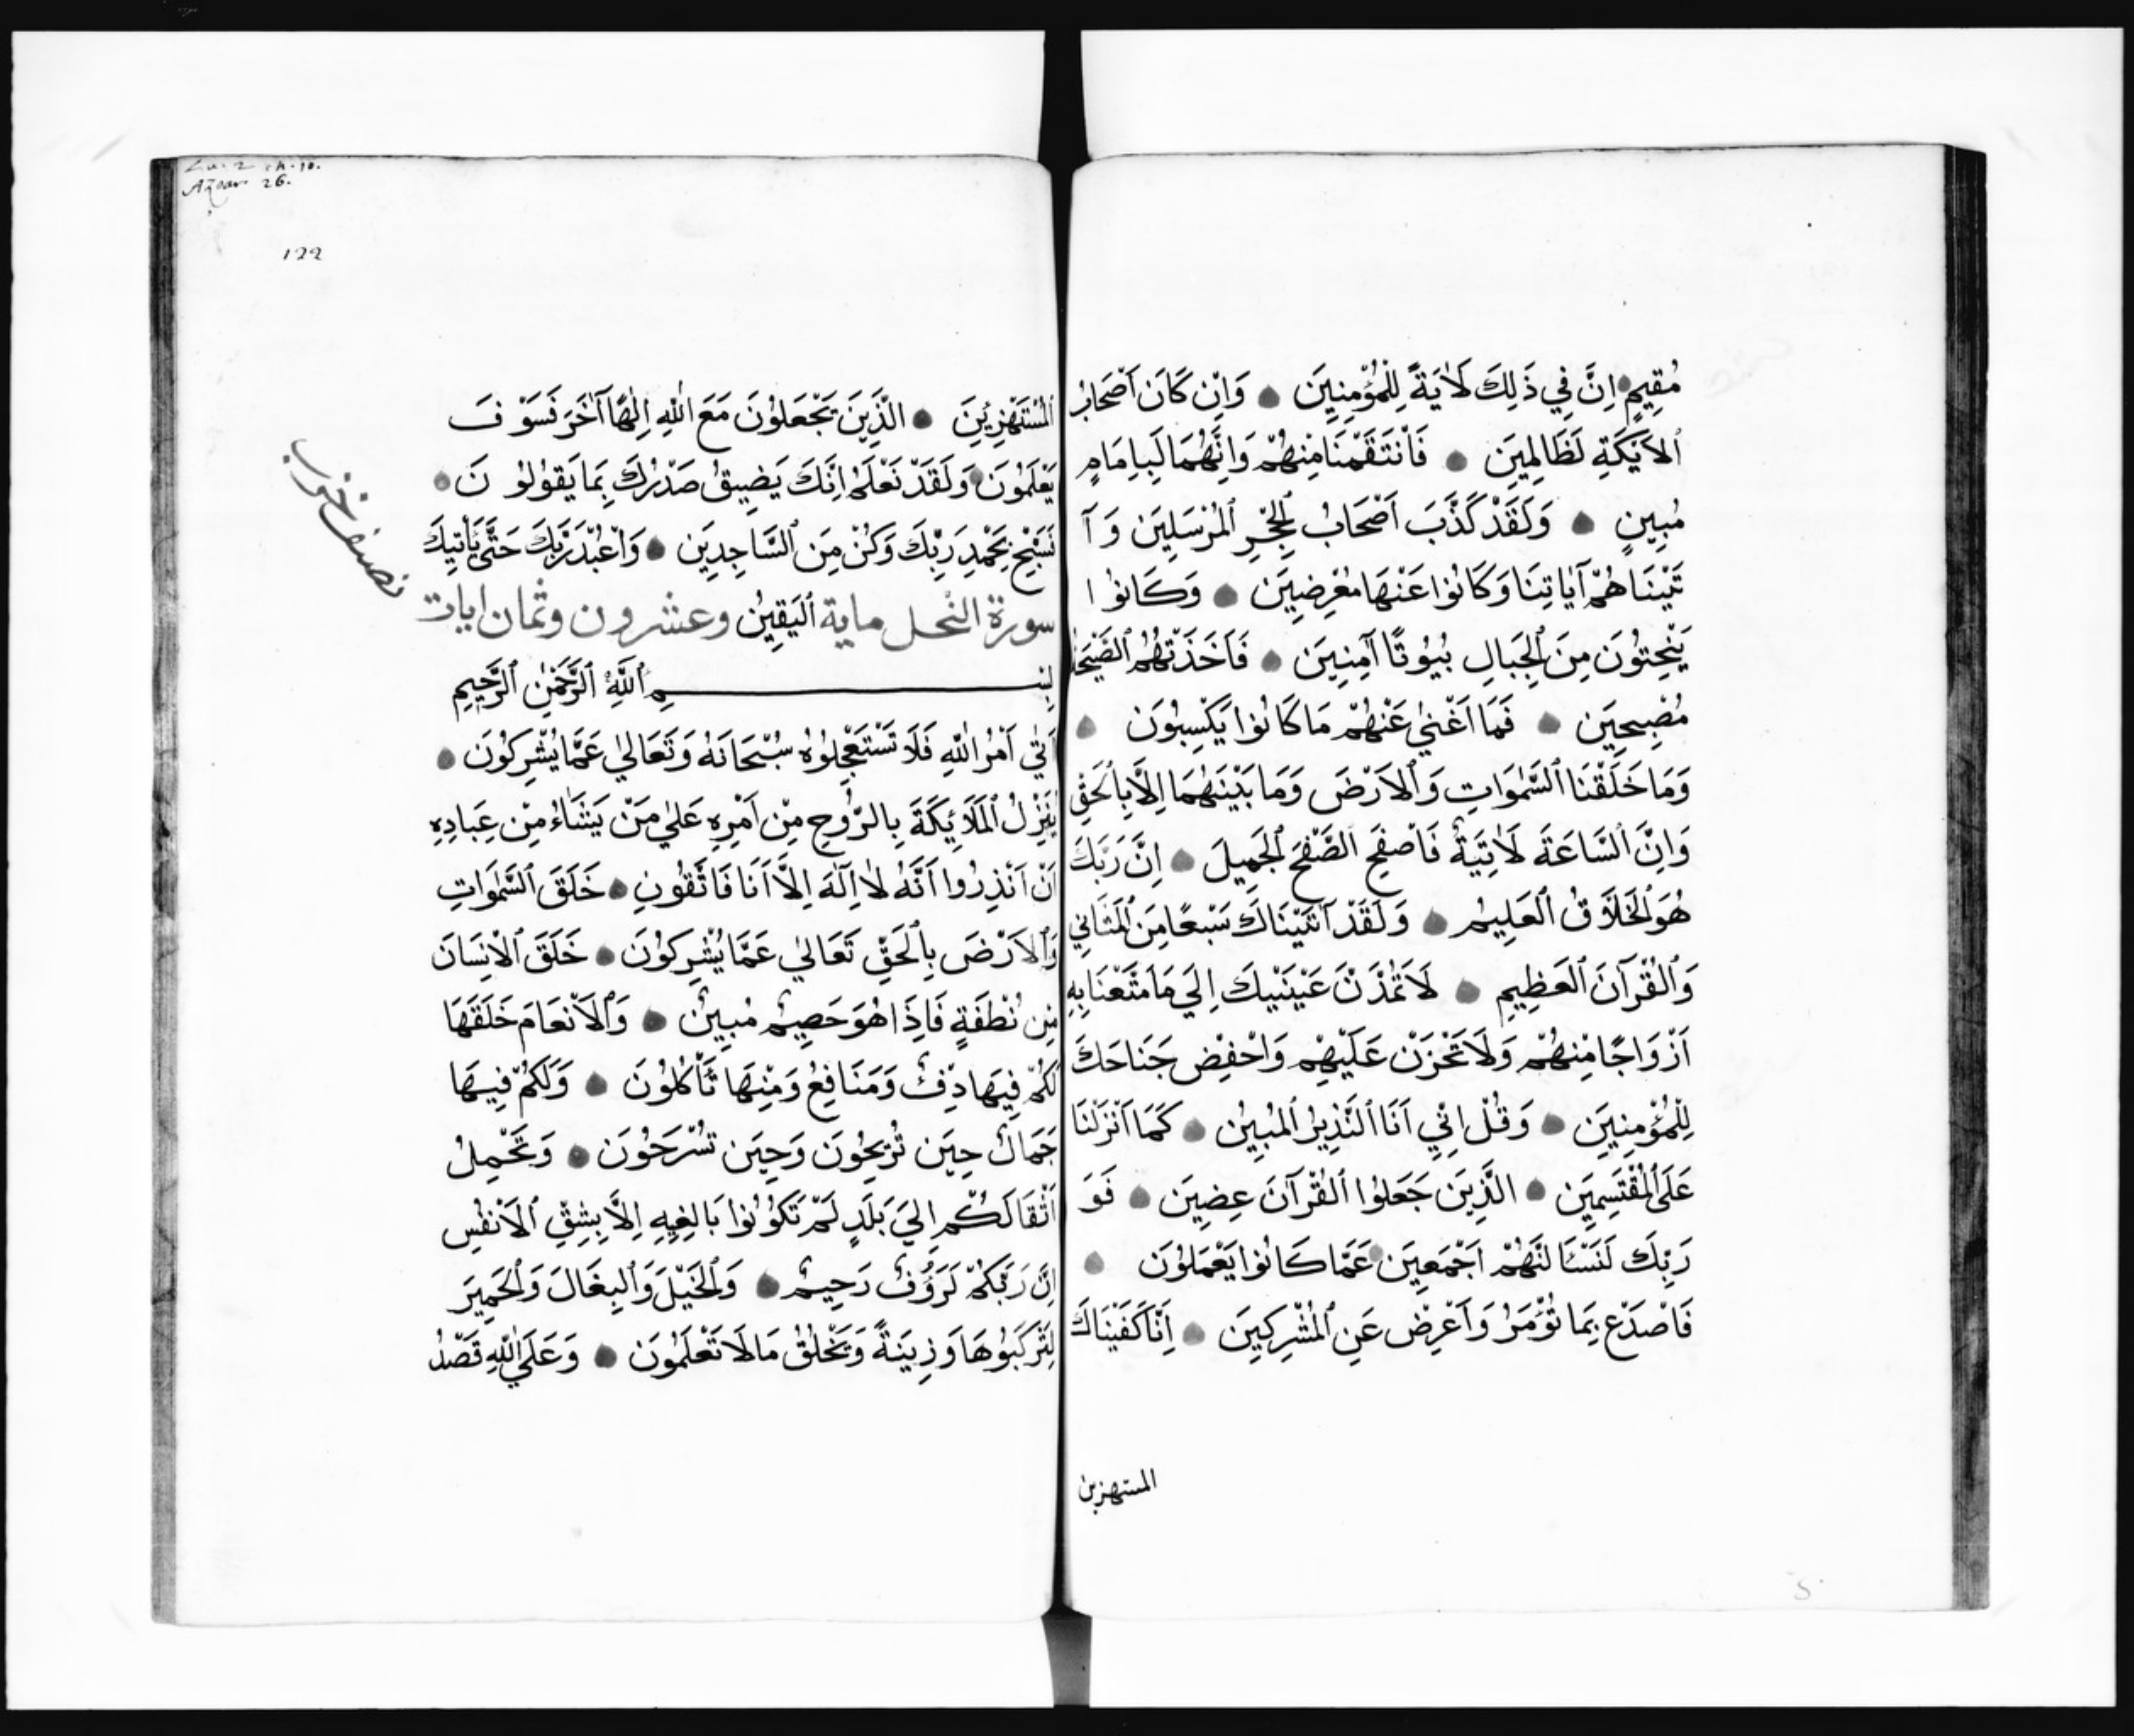 مُقِيمٍ اِنَّ فِي ذَلِكَ لَاٰيَةً لِلْمُؤْمِنِينَ وَاِنْ كَانَ اَصْحَابُ
ٱلاَيْكَةِ لَظَالِمِينَ فَاَنْتَقَمْنَا مِنْهُمْ وَاِنَّهُمَا لَبِاِمَامٍ
مُبِينٍ وَلَقَدْ كَذَّبَ اَصْحَابُ ٱلْحِجْرِ ٱلْمُرْسَلِينَ وَ آ
تَيْنَاهُمْ آيَاتِنَا وَكَانُوا عَنْهَا مُعْرِضِينَ وَكَانُوا
يَنْحِتُونَ مِنَ ٱلْجِبَالِ بُيُوتًا آمِنِينَ فَاَخَذَتْهُمُ ٱلصَّيْحَةُ
مُصْبِحِينَ فَمَا اَغْنٰي عَنْهُمْ مَا كَانُوا يَكْسِبُونَ
وَمَا خَلَقْنَا ٱلسَّمٰوَاتِ وَٱلاَرْضَ وَمَا بَيْنَهُمَا اِلَّا بِٱلْحَقِّ
وَاِنَّ ٱلسَّاعَةَ لَاٰتِيَةٌ فَاصْفَحِ ٱلصَّفْحَ ٱلْجَمِيلَ اِنَّ رَبَّكَ
هُوَ ٱلْخَلَّاقُ ٱلْعَلِيمُ وَلَقَدْ آتَيْنَاكَ سَبْعًا مِنَ ٱلْمَثَانِي
وَٱلْقُرْآنَ ٱلْعَظِيمِ لَا تَمُدَّنَّ عَيْنَيْكَ اِلَي مَا مَتَّعْنَا بِهِ
اَزْوَاجًا مِنْهُمْ وَلَا تَحْزَنْ عَلَيْهِمْ وَاخْفِضْ جَنَاحَكَ
لِلْمُؤْمِنِينَ وَقُلْ اِنِّي اَنَا ٱلنَّذِيرُ ٱلْمُبِينُ كَمَا اَنْزَلْنَا
عَلَي ٱلْمُقْتَسِمِينَ الَّذِينَ جَعَلُوا ٱلْقُرْآنَ عِضِينَ فَوَ
رَبِّكَ لَنَسْئَالَنَّهُمْ اَجْمَعِينَ عَمَّا كَانُوا يَعْمَلُونَ
فَاصْدَعْ بِمَا تُؤْمَرُ وَاَعْرِضْ عَنِ ٱلْمُشْرِكِينَ اِنَّا كَفَيْنَاكَ
المستهزين
Azoar 26.
122
ٱلْمُسْتَهْزِئِينَ الَّذِينَ يَجْعَلُونَ مَعَ اللّٰهِ اِلٰهًا آخَرَ فَسَوْفَ
يَعْلَمُونَ وَلَقَدْ نَعْلَمُ اِنَّكَ يَضِيقُ صَدْرُكَ بِمَا يَقُولُونَ
فَسَبِّحْ بِحَمْدِ رَبِّكَ وَكُنْ مِنَ ٱلسَّاجِدِينَ وَاعْبُدْ رَبَّكَ حَتَّي يَأْتِيَكَ
سورة النحل ماية ٱلْيَقِينُ وعشرون وثمان ايات
نصف حزب
بِسْمِ ٱللّٰهِ ٱلرَّحْمٰنِ ٱلرَّحِيمِ
اَتٰي اَمْرُ اللّٰهِ فَلَا تَسْتَعْجِلُوهُ سُبْحَانَهُ وَتَعَالٰي عَمَّا يُشْرِكُونَ
يُنَزِّلُ ٱلْمَلَائِكَةَ بِالرُّوحِ مِنْ اَمْرِهِ عَلٰي مَنْ يَشَاءُ مِنْ عِبَادِهِ
اَنْ اَنْذِرُوا اَنَّهُ لَا اِلَهَ اِلَّا اَنَا فَاتَّقُونِ خَلَقَ ٱلسَّمٰوَاتِ
وَٱلاَرْضَ بِٱلْحَقِّ تَعَالٰي عَمَّا يُشْرِكُونَ خَلَقَ ٱلْاِنْسَانَ
مِنْ نُطْفَةٍ فَاِذَا هُوَ خَصِيمٌ مُبِينٌ وَٱلْاَنْعَامَ خَلَقَهَا
لَكُمْ فِيهَا دِفْءٌ وَمَنَافِعُ وَمِنْهَا تَأْكُلُونَ وَلَكُمْ فِيهَا
جَمَالٌ حِينَ تُرِيحُونَ وَحِينَ تَسْرَحُونَ وَتَحْمِلُ
اَثْقَالَكُمْ اِلَي بَلَدٍ لَمْ تَكُونُوا بَالِغِيهِ اِلَّا بِشِقِّ ٱلْاَنْفُسِ
اِنَّ رَبَّكُمْ لَرَؤُفٌ رَحِيمٌ وَٱلْخَيْلَ وَٱلْبِغَالَ وَٱلْحَمِيرَ
لِتَرْكَبُوهَا وَزِينَةً وَيَخْلُقُ مَا لَا تَعْلَمُونَ وَعَلَي اللّٰهِ قَصْدُ